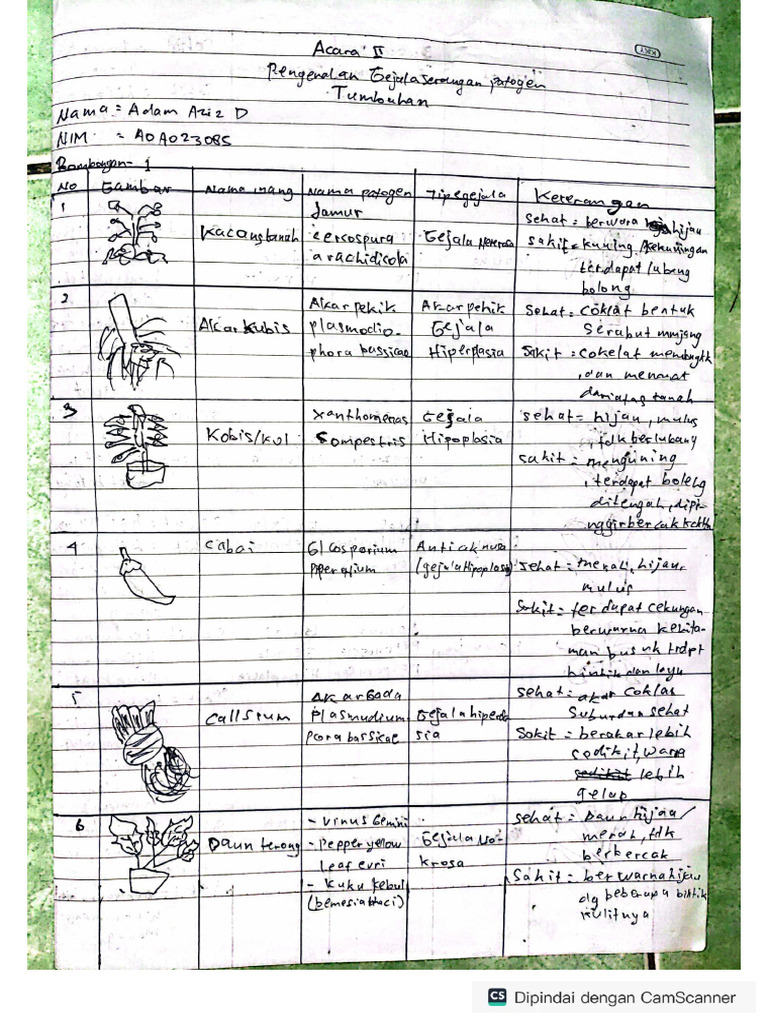 Acara II
Pengenalan Gejala serangan patogen
Tumbuhan
Nama = Adam Aziz D
NIM = A0A023085
Rombongan = 1
No Gambar Nama inang Nama patogen Tipe gejala Keterangan
1
Kacang tanah
Jamur
cercospura
arachidicola
Gejala Nekrosa
Sehat = berwara hijau
sakit = kuning kekuningan
terdapat lubang
bolong
2
Akar kubis
Akar pekik
plasmodio-
phora bassicae
Akar pekik
Gejala
Hiperplasia
Sehat = coklat bentuk
Serabut
Sakit = cokelat membengkk
, dan
tanah
3
Kobis/kol
Xanthomenas
Compestris
Gejala
Hipoplasia
sehat = hijau, mulus
, tdk berlubang
sakit = menguning
, terdapat boleng
ditengah, dipi-
nggir bercak
4
Cabai
Glcosporium
piperatium
Antraknosa
(gejala Hipoplasia)
sehat = merah, hijau
mulus
Sakit = terdapat cekungan
berwarna kehita-
man busuk trdpt
bintik dan layu
5
Callsium
Akar Gada
Plasmudium
pora bassicae
Gejala hiperpla
sia
sehat = akar coklas
Subur dan sehat
Sakit = berakar lebih
sedikit, warna
lebih
gelap
6
Daun terong
- Virus Gemini
- Pepper yellow
leaf
- Kuku kebul
(bemesia tbaci)
Gejala No-
krosa
sehat = Daun hijau/
merah, tdk
berbercak
Sakit = berwarna hijau
dg beberapa bintik
kulitnya
CS Dipindai dengan CamScanner